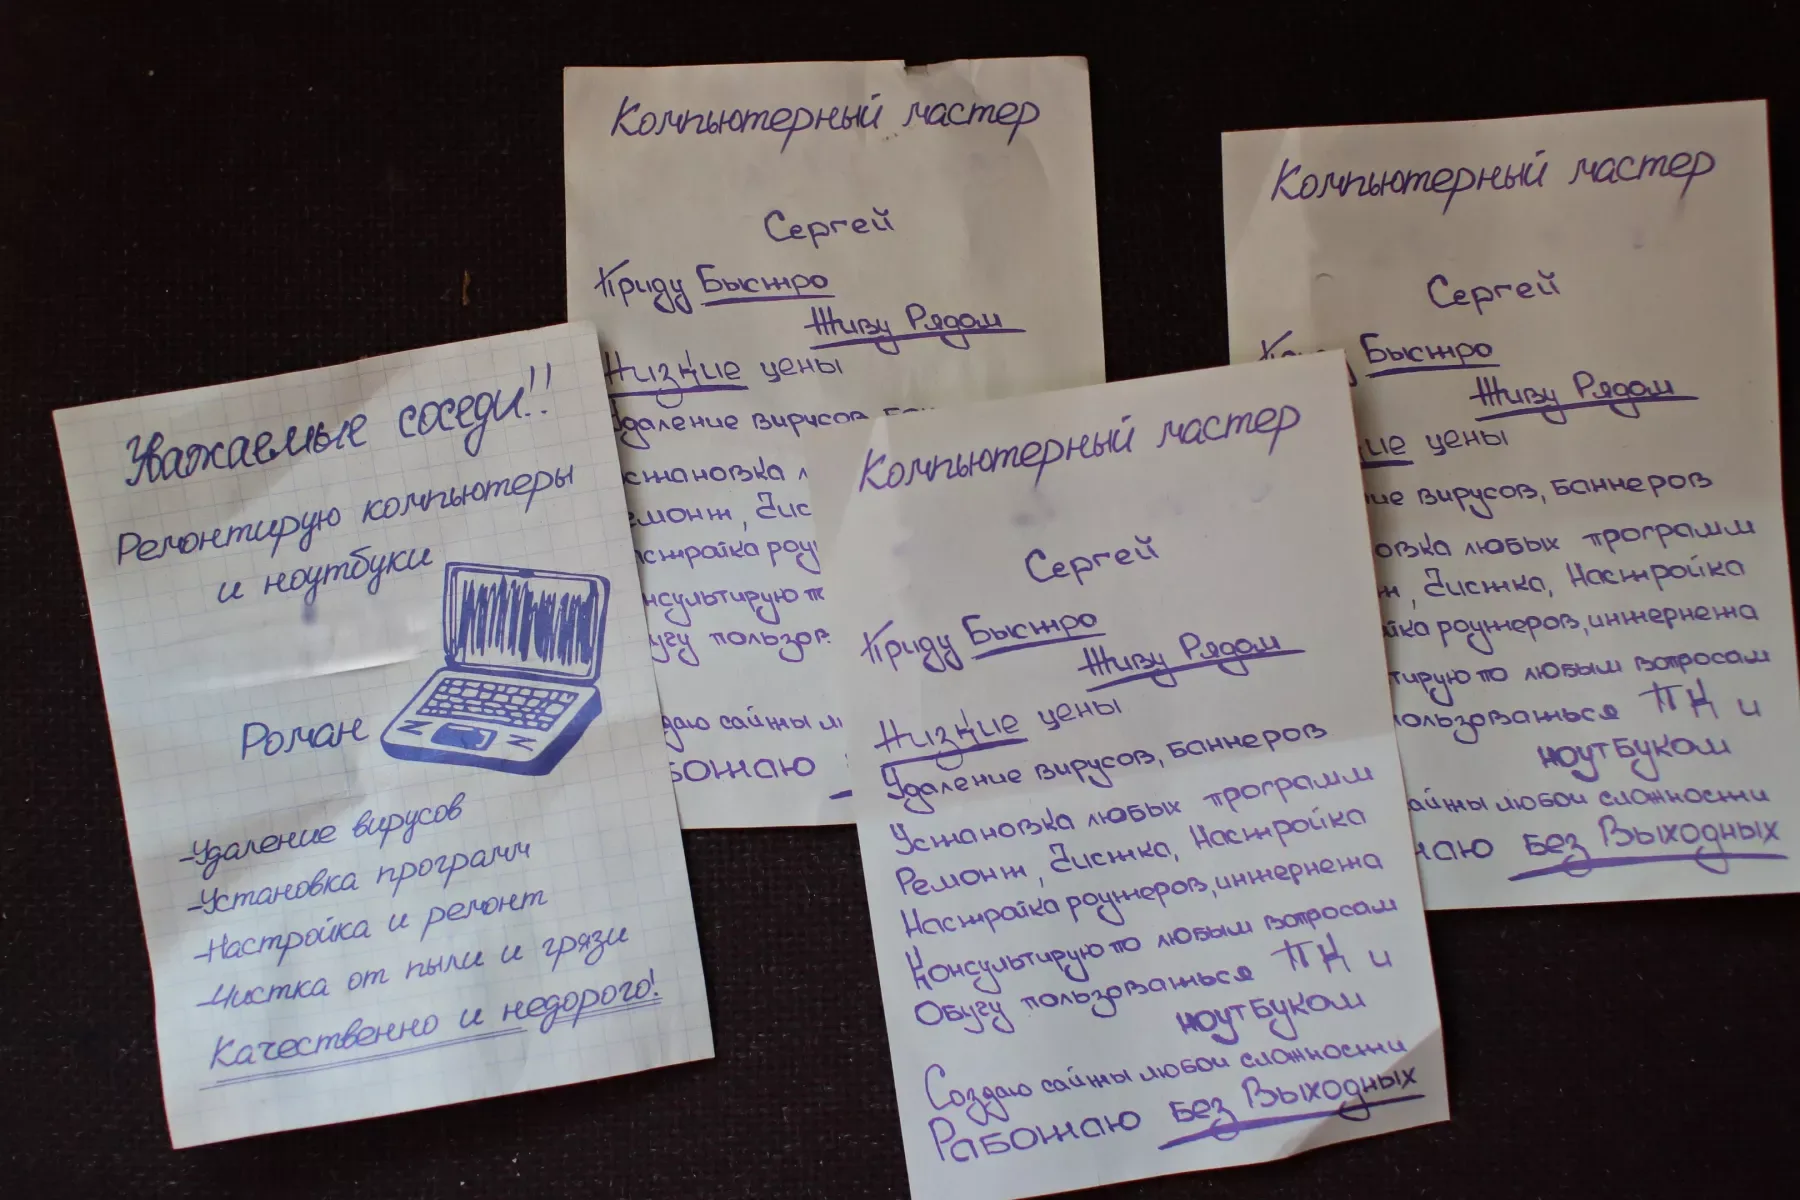 Уважаемые соседи!!
Ремонтирую компьютеры
и ноутбуки
Роман
-Удаление вирусов
-Установка программ
-Настройка и ремонт
-Чистка от пыли и грязи
Качественно и недорого!
Компьютерный мастер
Сергей
Приду Быстро
Живу Рядом
Низкие цены
Удаление вирусов
становка л
емонт, Чис
стройка роу
нсультирую п
угу пользов
даю сайты л
ботаю
Компьютерный мастер
Сергей
Приду Быстро
Живу Рядом
Низкие цены
Удаление вирусов, баннеров
Установка любых программ
Ремонт, Чистка, Настройка
Настройка роутеров, интернета
Консультирую по любым вопросам
Обучу пользоваться ПК и
ноутбуком
Создаю сайты любой сложности
Работаю Без Выходных
Компьютерный мастер
Сергей
Быстро
Живу Рядом
ие цены
ие вирусов, баннеров
овка любых программ
т, Чистка, Настройка
йка роутеров, интернета
тирую по любым вопросам
ользоваться ПК и
ноутбуком
айты любой сложности
таю Без Выходных